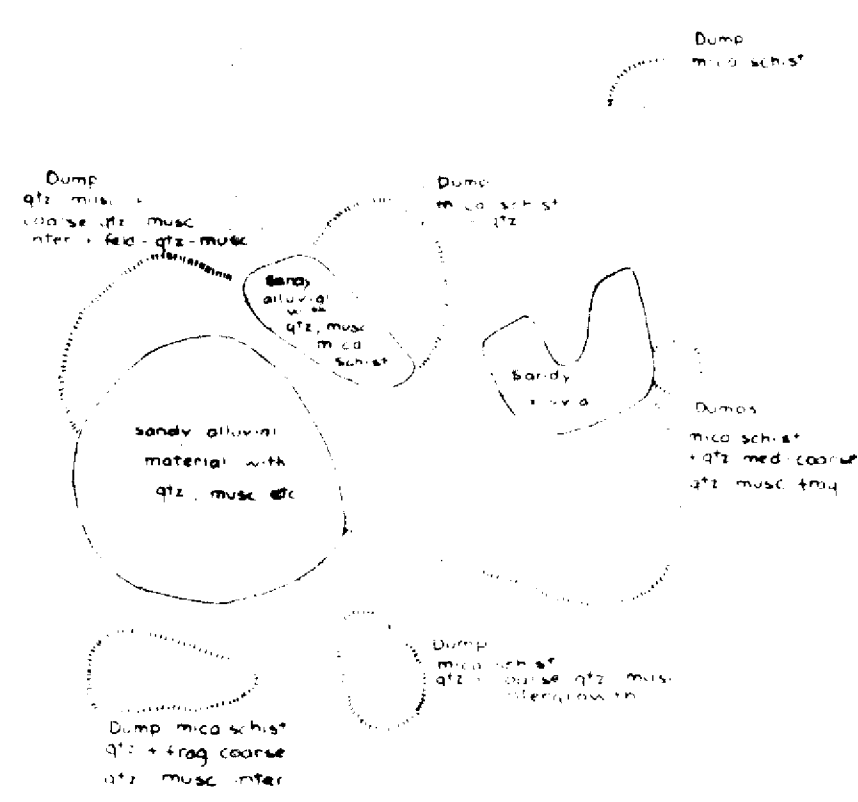 Dump
mica schist
Dump
qtz musc +
coarse qtz musc
inter + feld - qtz - musc
Dump
mica schist
qtz
Sandy
alluvial
with
qtz, musc
mica
schist
Sandy
Dumps
mica schist
+ qtz med-coarse
qtz musc frag
sandy alluvial
material with
qtz, musc etc
Dump
mica schist
qtz + coarse qtz musc
intergrowth
Dump mica schist
qtz + frag coarse
qtz musc inter